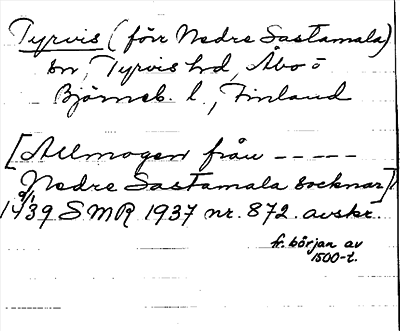 Tyrvis (förr Nedre Sastamala)
sn, Tyrvis hd, Åbo o
Björneb. l., Finland
[Allmogen från -----
Nedre Sastamala socknar]
14 9/1 39 SMR 1937 nr. 872. avskr.
fr. början av
1500-t.